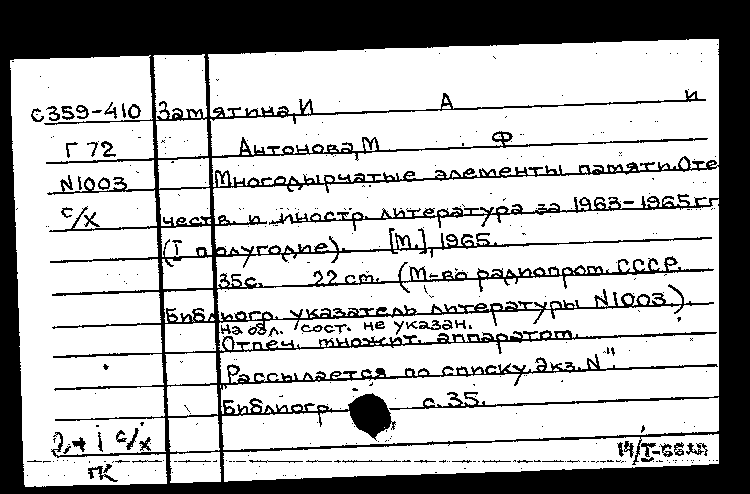 С359-410 Замятина, И А и
Г 72 Антонова, М Ф
N1003 Многодырчатые элементы памяти. Оте
с/х честв. и иностр. литература за 1963-1965 гг
(I полугодие). [М.], 1965.
35с. 22 ст. (М-во радиопром. СССР.
Библиогр. указатель литературы N1003).
на обл. сост. не указан.
Отпеч. множит. аппаратом.
"Рассылается по списку. Экз. N".
Библиогр. с. 35.
2 + 1 с/х
ПК 14/I-66